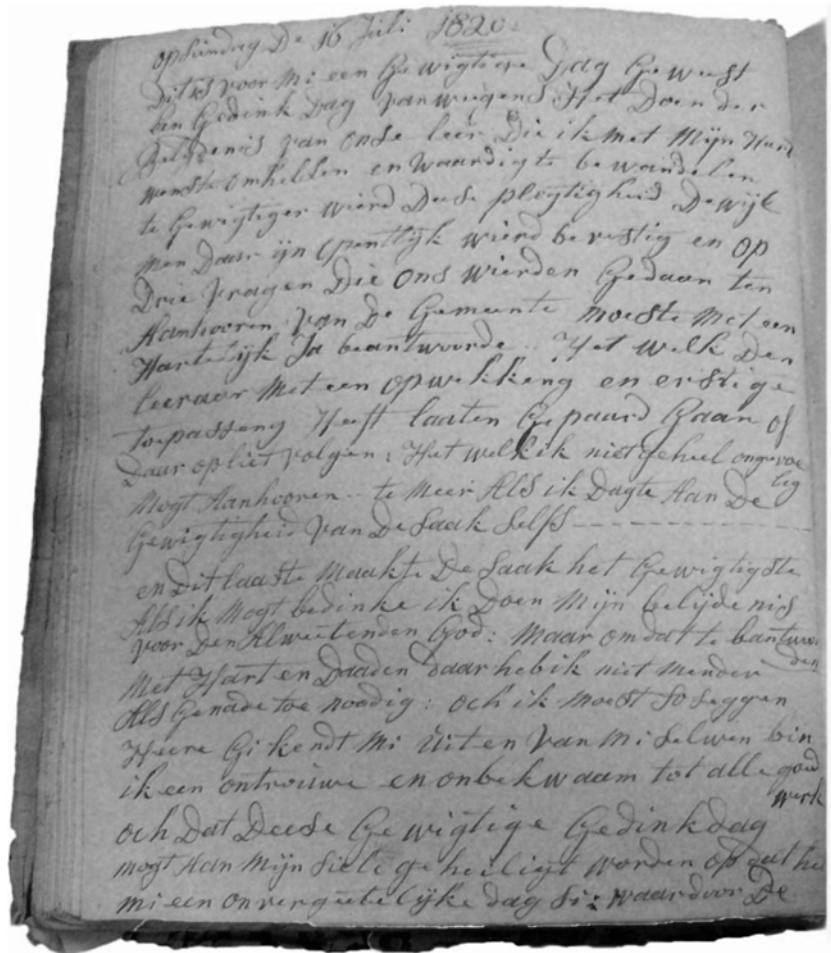 op sundag De 16 Juli 1820
Dit is voor Mi een Gewigtiere Dag Geweest
En Gedink Dag van weegens Het Doen der
Belydenis van onse leer Die ik met Mijn Hart
wenste omhelsen en waardig te bewandelen
te Gewigtiger wierd Deese plegtigheid Dewyl
Men Daar in opentlyk wierd bevestig en op
Drie vragen Die ons wierden Gedaan ten
Aanhooren van De Gemeente moeste Met een
Hartelijk Ja beantwoorde .. Het welk Den
leeraar Met een opwekking en erstige
toepasseng Heeft laaten Gepaard Gaan of
Daar op liet volgen : Het welk ik niet geheel ongevoe
lig
Mogt Aanhooren .. te Meer Als ik Dagte Aan De
Gewigtigheid van De Saak Selfs
en Dit laaste Maakte De Saak het Gewigtigste
Als ik Mogt bedinke ik Doen Mijn belijdenis
voor Den Alweetenden God : Maar om dat te bantwor
den
Met Hart en Daaden daar heb ik niet Mender
Als Genade toe noodig : och ik moest So Seggen
Heere Gi kendt Mi Uit en van Mi Selwen bin
ik een ontrouwe en onbekwaam tot alle goed
werk
och Dat Deese Gewigtige Gedinkdag
mogt Aan Mijn Siele geheiligt worden op dat he
mi een onvergeetelijke dag Si : waardoor De